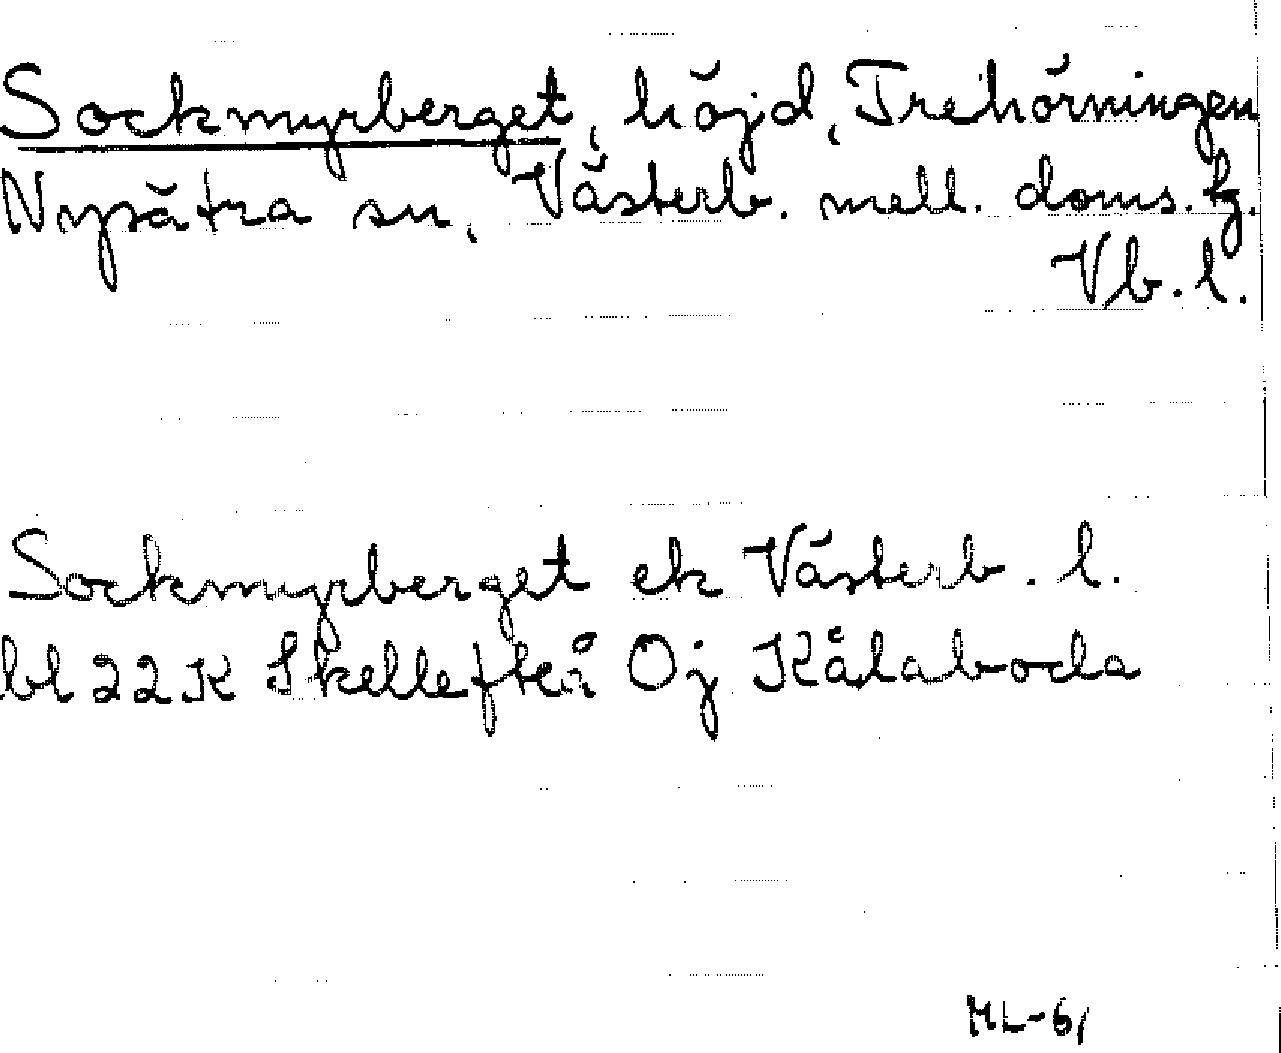 Sockmyrberget, höjd, Trehörningen
Nysätra sn, Västerb. mell. doms. tg.
Vb. l.
Sockmyrberget ek Västerb. l.
bl 22K Skellefteå Oj Kålaboda
ML-6